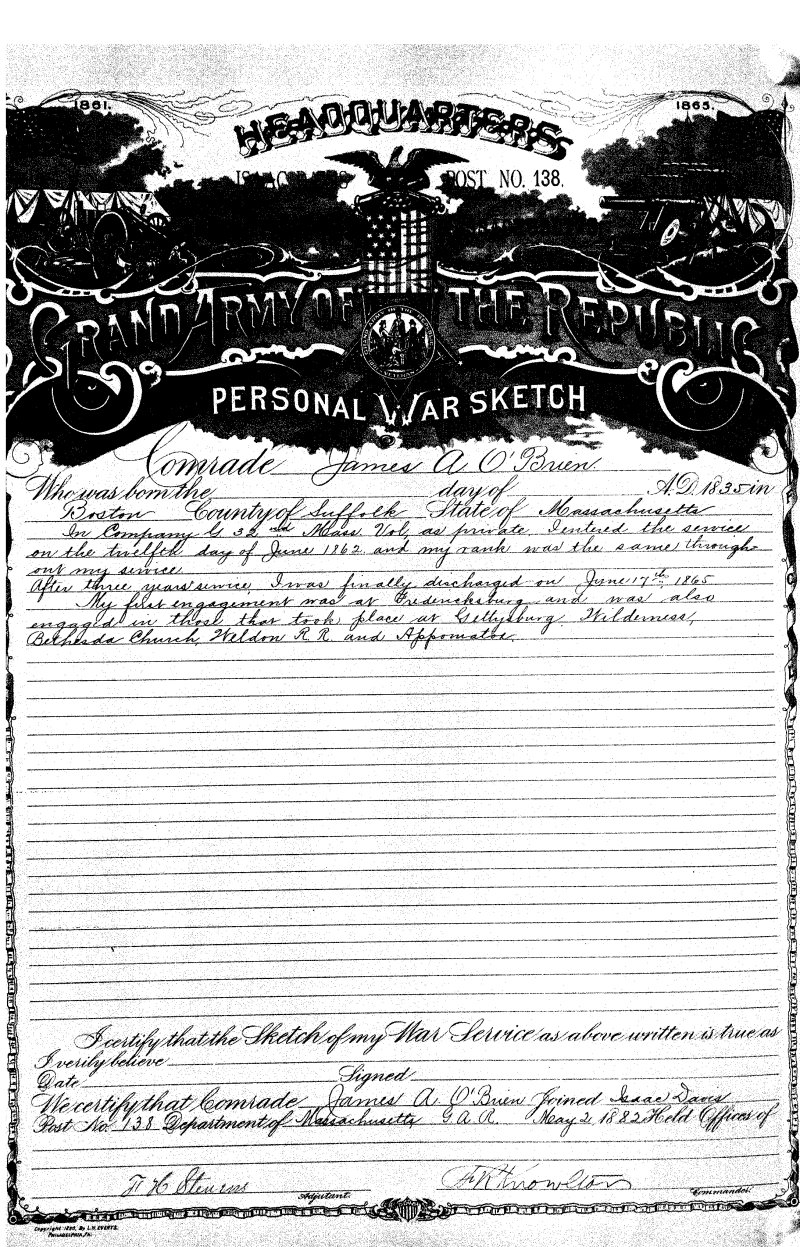 1861.
1865.
HEADQUARTERS
POST NO. 138.
GRAND ARMY OF THE REPUBLIC
PERSONAL WAR SKETCH
Comrade James A O'Brien
Who was born the day of A.D. 1835 in
Boston County of Suffolk State of Massachusetts
In Company G 32nd Mass. Vol, as private, I entered the service
on the twelfth day of June 1862 and my rank was the same through-
out my service
After three years service, I was finally discharged on June 17th, 1865
My first engagement was at Fredericksburg and was also
engaged in those that took place at Gettysburg, Wilderness,
Bethesda Church, Weldon R.R and Appomatox.
I certify that the Sketch of my War Service as above written is true as
I verily believe
Date Signed
We certify that Comrade James A. O'Brien Joined Isaac Davis
Post No. 138 Department of Massachusetts G.A.R. May 2, 1882 Held Offices of
F H Stevens Knowlton
Adjutant. Commander.
Copyright 1890, By L.H. EVERTS,
PHILADELPHIA, PA.